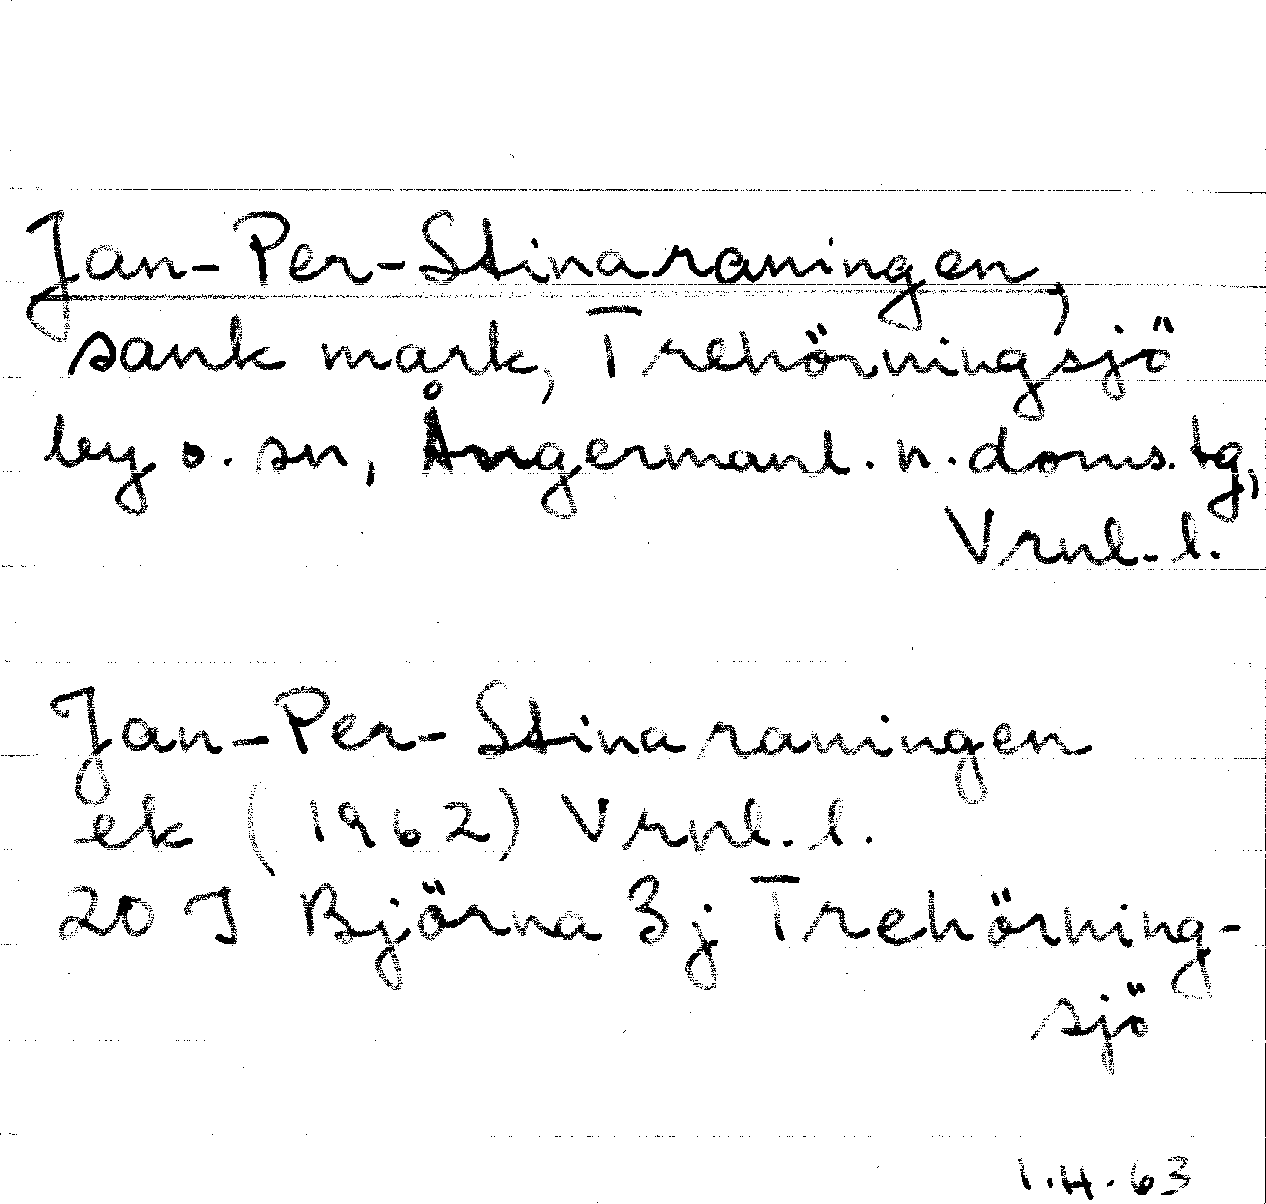 Jan-Per-Stinaraningen,
sank mark, Trehörningsjö
by o. sn, Ångermanl. n. doms. tg,
Vrnl. l.
Jan-Per-Stinaraningen
ek (1962) Vrnl. l.
20 J Björna 3j Trehörning-
sjö
1.H.63